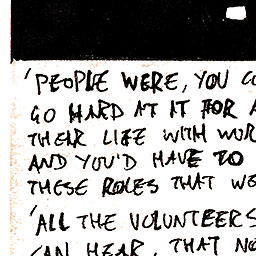 'PEOPLE WERE, YOU CO
GO HARD AT IT FOR A
THEIR LIFE WITH WOR
AND YOU'D HAVE TO
THESE ROLES THAT WE
'ALL THE VOLUNTEERS
CAN HEAR, THAT NO